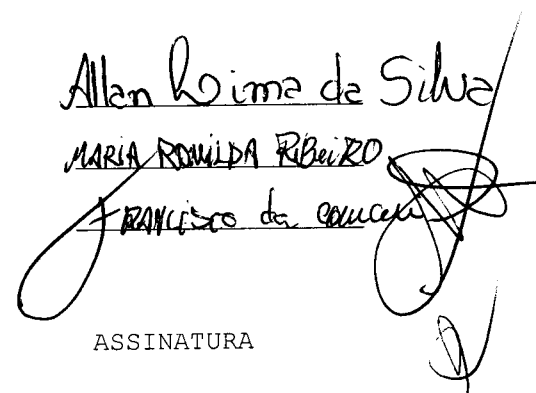 Allan Lima da Silva
MARIA ROMILDA RiBeiRO
FRANCISCO da
ASSINATURA